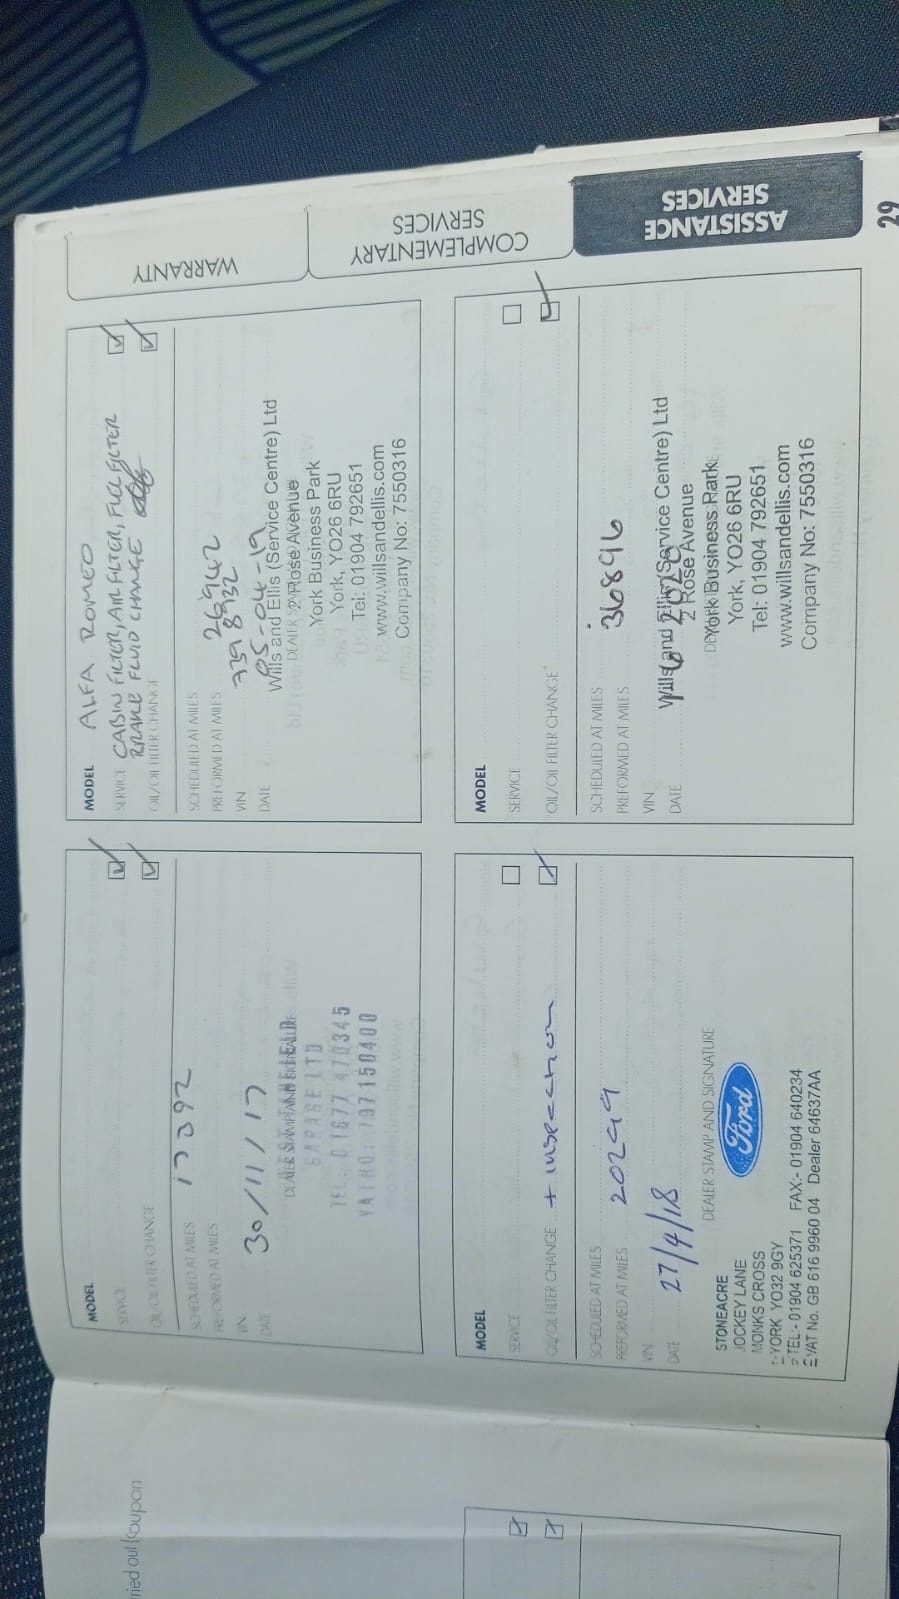 MODEL
SERVICE
OIL/OIL FILTER CHANGE
SCHEDULED AT MILES
PREFORMED AT MILES 17392
VIN
DATE 30/11/17
DEALER STAMP AND SIGNATURE
GARAGE LTD
TEL: 01677 470345
VAT NO: 737150400
MODEL ALFA ROMEO
SERVICE CABIN FILTER, AIR FILTER, FUEL FILTER
BRAKE FLUID CHANGE
OIL/OIL FILTER CHANGE
SCHEDULED AT MILES
PREFORMED AT MILES 26942
VIN 7398932
DATE 05-04-19
Wills and Ellis (Service Centre) Ltd
2 Rose Avenue
York Business Park
York, YO26 6RU
Tel: 01904 792651
www.willsandellis.com
Company No: 7550316
MODEL
SERVICE
OIL/OIL FILTER CHANGE + inspection
SCHEDULED AT MILES
PREFORMED AT MILES 20299
VIN
DATE 27/4/18
DEALER STAMP AND SIGNATURE
Ford
STONEACRE
JOCKEY LANE
MONKS CROSS
YORK YO32 9GY
TEL:- 01904 625371 FAX:- 01904 640234
VAT No. GB 616 9960 04 Dealer 64637AA
MODEL
SERVICE
OIL/OIL FILTER CHANGE
SCHEDULED AT MILES
PREFORMED AT MILES 36896
VIN
DATE
Wills and Ellis (Service Centre) Ltd
2 Rose Avenue
York Business Park
York, YO26 6RU
Tel: 01904 792651
www.willsandellis.com
Company No: 7550316
WARRANTY
COMPLEMENTARY
SERVICES
ASSISTANCE
SERVICES
29
ried out Coupon